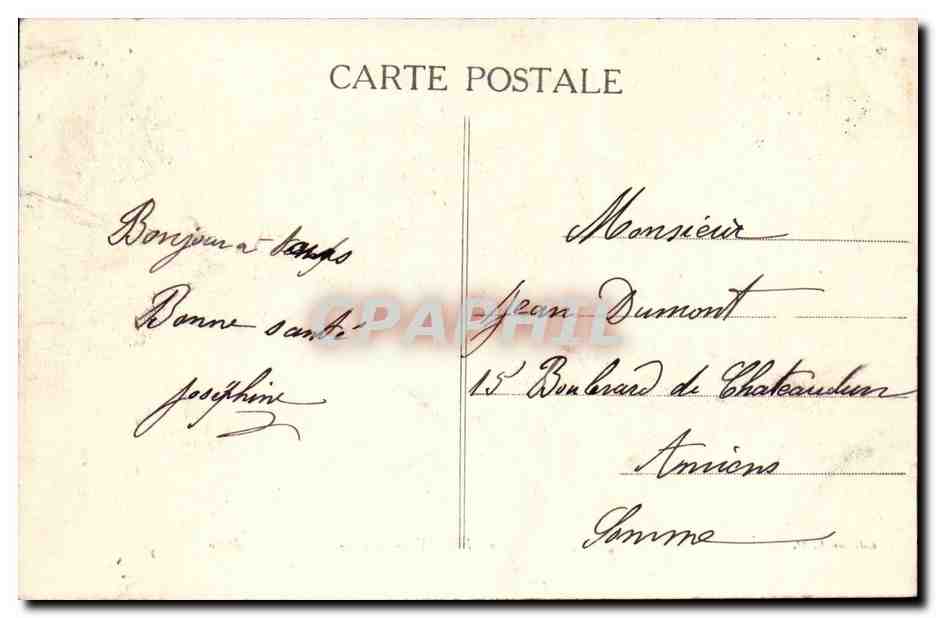 CARTE POSTALE
Bonjour à
Bonne santé
Joséphine
Monsieur
Jean Dumont
15 Boulevard de Chateaudun
Amiens
Somme
CPAPHIL